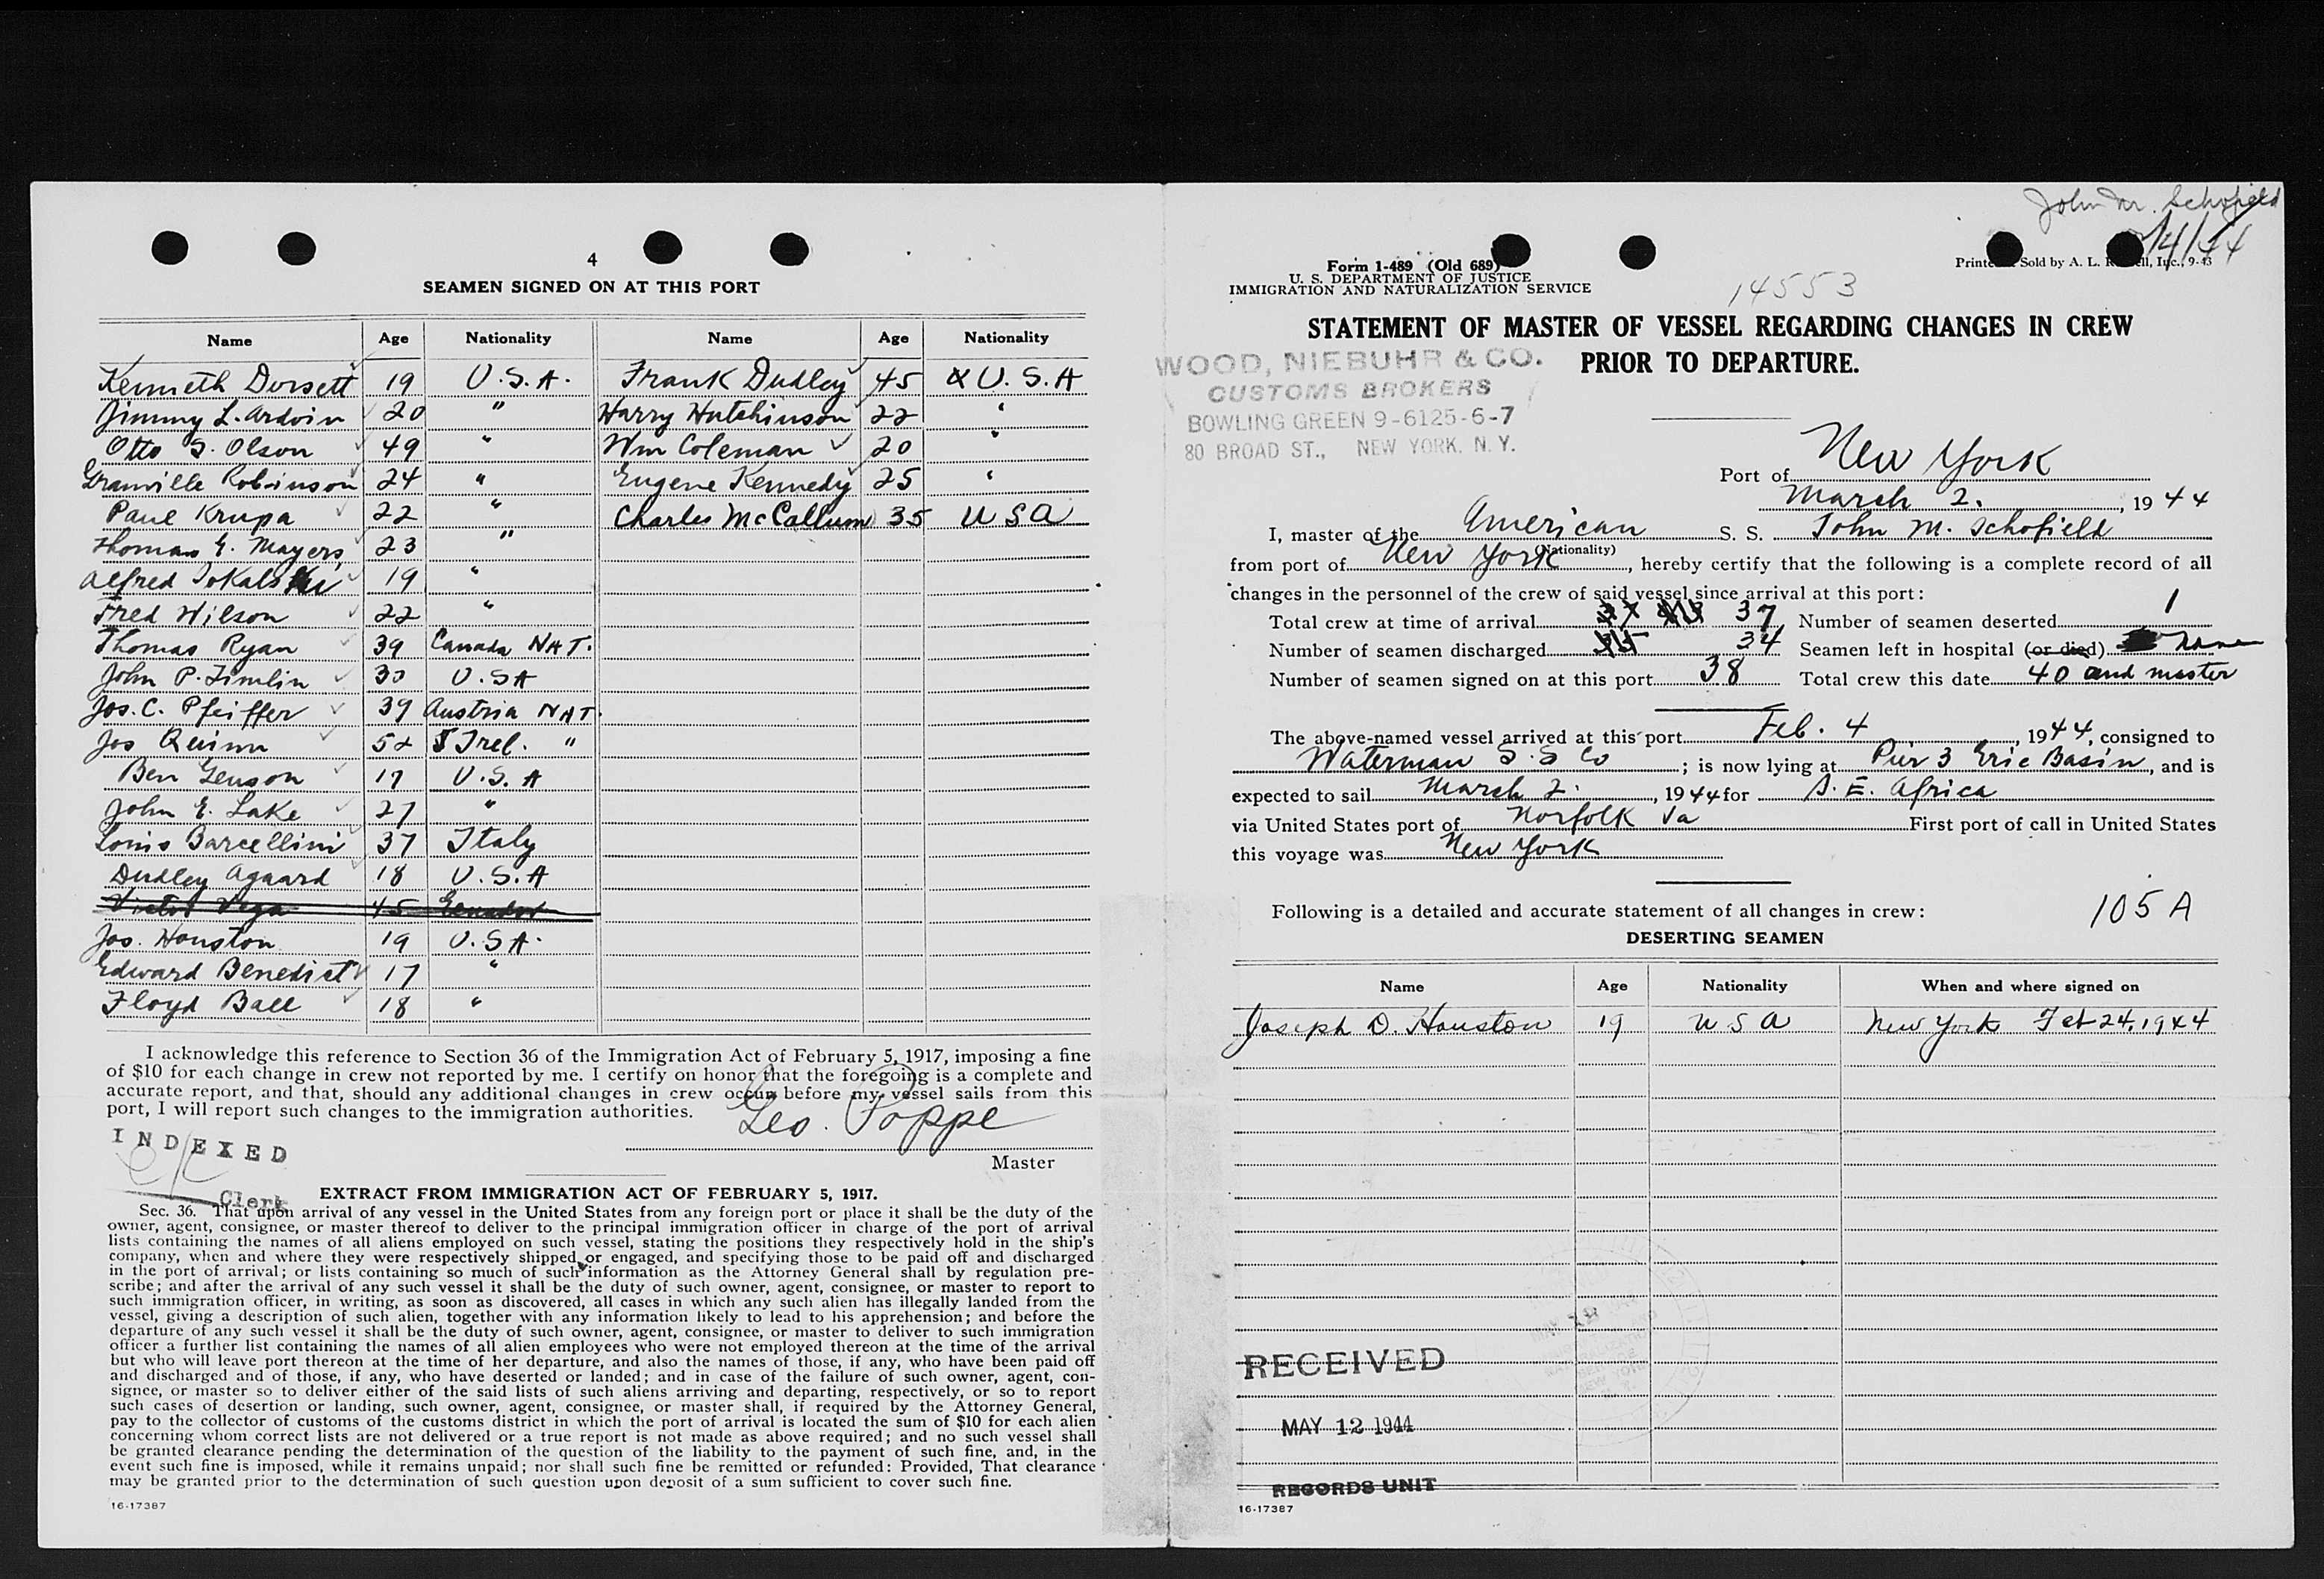 4
SEAMEN SIGNED ON AT THIS PORT
Name Age Nationality Name Age Nationality
Kenneth Dorsett 19 U.S.A. Frank Dudley 45 U.S.A
Jimmy L. Ardoin 20 " Harry Hutchinson 22 "
Otto G. Olson 49 " Wm Coleman 20 "
Granville Robinson 24 " Eugene Kennedy 25 "
Paul Krupa 22 " Charles McCallum 35 USA
Thomas E. Mayers 23 "
Alfred 19 "
Fred Wilson 22 "
Thomas Ryan 39 Canada NAT.
John P. Timlin 30 U.SA
Jos. C. Pfeiffer 39 Austria NAT.
Jos Quinn 52 Irel. "
Ben Genson 17 U.S.A
John E. Lake 27 "
Louis Barcellini 37 Italy
Dudley Agaard 18 U.S.A
Victor Vega 45 Ecuador
Jos. Houston 19 U.SA.
Edward Benedict 17 "
Floyd Ball 18 "
I acknowledge this reference to Section 36 of the Immigration Act of February 5, 1917, imposing a fine
of $10 for each change in crew not reported by me. I certify on honor that the foregoing is a complete and
accurate report, and that, should any additional changes in crew occur before my vessel sails from this
port, I will report such changes to the immigration authorities.
Geo. Poppe
Master
INDEXED
Clerk
EXTRACT FROM IMMIGRATION ACT OF FEBRUARY 5, 1917.
Sec. 36. That upon arrival of any vessel in the United States from any foreign port or place it shall be the duty of the
owner, agent, consignee, or master thereof to deliver to the principal immigration officer in charge of the port of arrival
lists containing the names of all aliens employed on such vessel, stating the positions they respectively hold in the ship's
company, when and where they were respectively shipped or engaged, and specifying those to be paid off and discharged
in the port of arrival; or lists containing so much of such information as the Attorney General shall by regulation pre-
scribe; and after the arrival of any such vessel it shall be the duty of such owner, agent, consignee, or master to report to
such immigration officer, in writing, as soon as discovered, all cases in which any such alien has illegally landed from the
vessel, giving a description of such alien, together with any information likely to lead to his apprehension; and before the
departure of any such vessel it shall be the duty of such owner, agent, consignee, or master to deliver to such immigration
officer a further list containing the names of all alien employees who were not employed thereon at the time of the arrival
but who will leave port thereon at the time of her departure, and also the names of those, if any, who have been paid off
and discharged and of those, if any, who have deserted or landed; and in case of the failure of such owner, agent, con-
signee, or master so to deliver either of the said lists of such aliens arriving and departing, respectively, or so to report
such cases of desertion or landing, such owner, agent, consignee, or master shall, if required by the Attorney General,
pay to the collector of customs of the customs district in which the port of arrival is located the sum of $10 for each alien
concerning whom correct lists are not delivered or a true report is not made as above required; and no such vessel shall
be granted clearance pending the determination of the question of the liability to the payment of such fine, and, in the
event such fine is imposed, while it remains unpaid; nor shall such fine be remitted or refunded: Provided, That clearance
may be granted prior to the determination of such question upon deposit of a sum sufficient to cover such fine.
16-17387
John M. Schofield
Form 1-489 (Old 689)
U. S. DEPARTMENT OF JUSTICE
IMMIGRATION AND NATURALIZATION SERVICE
Sold by A. L. Inc., 9-43
14553
STATEMENT OF MASTER OF VESSEL REGARDING CHANGES IN CREW
PRIOR TO DEPARTURE.
WOOD, NIEBUHR & CO.
CUSTOMS BROKERS
BOWLING GREEN 9-6125-6-7
80 BROAD ST., NEW YORK, N. Y.
Port of New York
March 2. , 1944
I, master of the American S. S. John M. Schofield
(Nationality)
from port of New York , hereby certify that the following is a complete record of all
changes in the personnel of the crew of said vessel since arrival at this port:
Total crew at time of arrival 37 Number of seamen deserted 1
Number of seamen discharged 34 Seamen left in hospital (or died) None
Number of seamen signed on at this port 38 Total crew this date 40 and master
The above-named vessel arrived at this port Feb. 4 , 1944, consigned to
Waterman S.S Co ; is now lying at Pier 3 Erie Basin, and is
expected to sail March 2. , 1944 for S. E. Africa
via United States port of Norfolk Va First port of call in United States
this voyage was New York
Following is a detailed and accurate statement of all changes in crew:
105 A
DESERTING SEAMEN
Name Age Nationality When and where signed on
Joseph D. Houston 19 USA New York Feb 24, 1944
RECEIVED
MAY 12 1944
RECORDS UNIT
16-17387